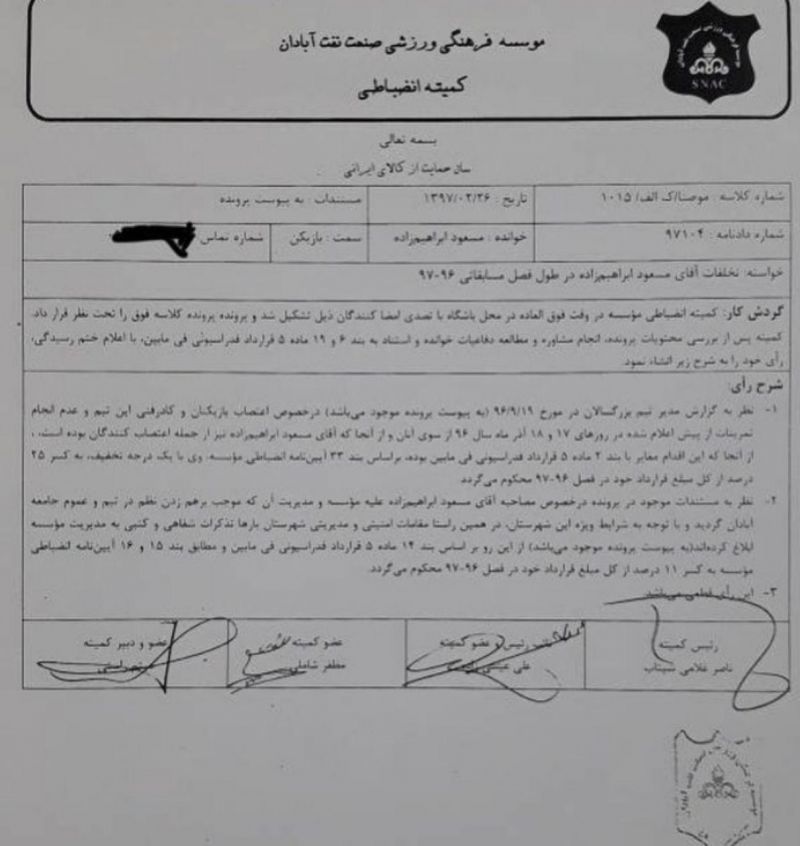 موسسه فرهنگی ورزشی صنعت نفت آبادان
SNAC
کمیته انضباطی
بسمه تعالی
سال حمایت از کالای ایرانی
شماره کلاسه : موصنا/ک الف/ ۱۰۱۵ تاریخ : ۱۳۹۷/۰۲/۲۶ مستندات : به پیوست پرونده
شماره دادنامه : ۹۷۱۰۴ خوانده : مسعود ابراهیم‌زاده سمت : بازیکن شماره تماس
خواسته: تخلفات آقای مسعود ابراهیم‌زاده در طول فصل مسابقاتی ۹۶-۹۷
گردش کار: کمیته انضباطی مؤسسه در وقت فوق العاده در محل باشگاه با تصدی امضا کنندگان ذیل تشکیل شد و پرونده پرونده کلاسه فوق را تحت نظر قرار داد.
کمیته پس از بررسی محتویات پرونده، انجام مشاوره و مطالعه دفاعیات خوانده و استناد به بند ۶ و ۱۹ ماده ۵ قرارداد فدراسیونی فی مابین، با اعلام ختم رسیدگی،
رأی خود را به شرح زیر انشاء نمود.
شرح رأی:
۱- نظر به گزارش مدیر تیم بزرگسالان در مورخ ۹۶/۹/۱۹ (به پیوست پرونده موجود می‌باشد) درخصوص اعتصاب بازیکنان و کادرفنی این تیم و عدم انجام
تمرینات از پیش اعلام شده در روزهای ۱۷ و ۱۸ آذر ماه سال ۹۶ از سوی آنان و از آنجا که آقای مسعود ابراهیم‌زاده نیز از جمله اعتصاب کنندگان بوده است، ،
از آنجا که این اقدام مغایر با بند ۲ ماده ۵ قرارداد فدراسیونی فی مابین بوده، براساس بند ۳۳ آیین‌نامه انضباطی مؤسسه، وی با یک درجه تخفیف، به کسر ۲۵
درصد از کل مبلغ قرارداد خود در فصل ۹۶-۹۷ محکوم می‌گردد.
۲- نظر به مستندات موجود در پرونده درخصوص مصاحبه آقای مسعود ابراهیم‌زاده علیه مؤسسه و مدیریت آن که موجب برهم زدن نظم در تیم و عموم جامعه
آبادان گردید و با توجه به شرایط ویژه این شهرستان، در همین راستا مقامات امنیتی و مدیریتی شهرستان بارها تذکرات شفاهی و کتبی به مدیریت مؤسسه
ابلاغ کرده‌اند(به پیوست پرونده موجود می‌باشد) از این رو بر اساس بند ۱۴ ماده ۵ قرارداد فدراسیونی فی مابین و مطابق بند ۱۵ و ۱۶ آیین‌نامه انضباطی
مؤسسه به کسر ۱۱ درصد از کل مبلغ قرارداد خود در فصل ۹۶-۹۷ محکوم می‌گردد.
۳- این رأی قطعی می‌باشد.
رئیس کمیته نائب رئیس و عضو کمیته عضو کمیته عضو و دبیر کمیته
ناصر غلامی سیناب علی عیسی مظفر شاملی